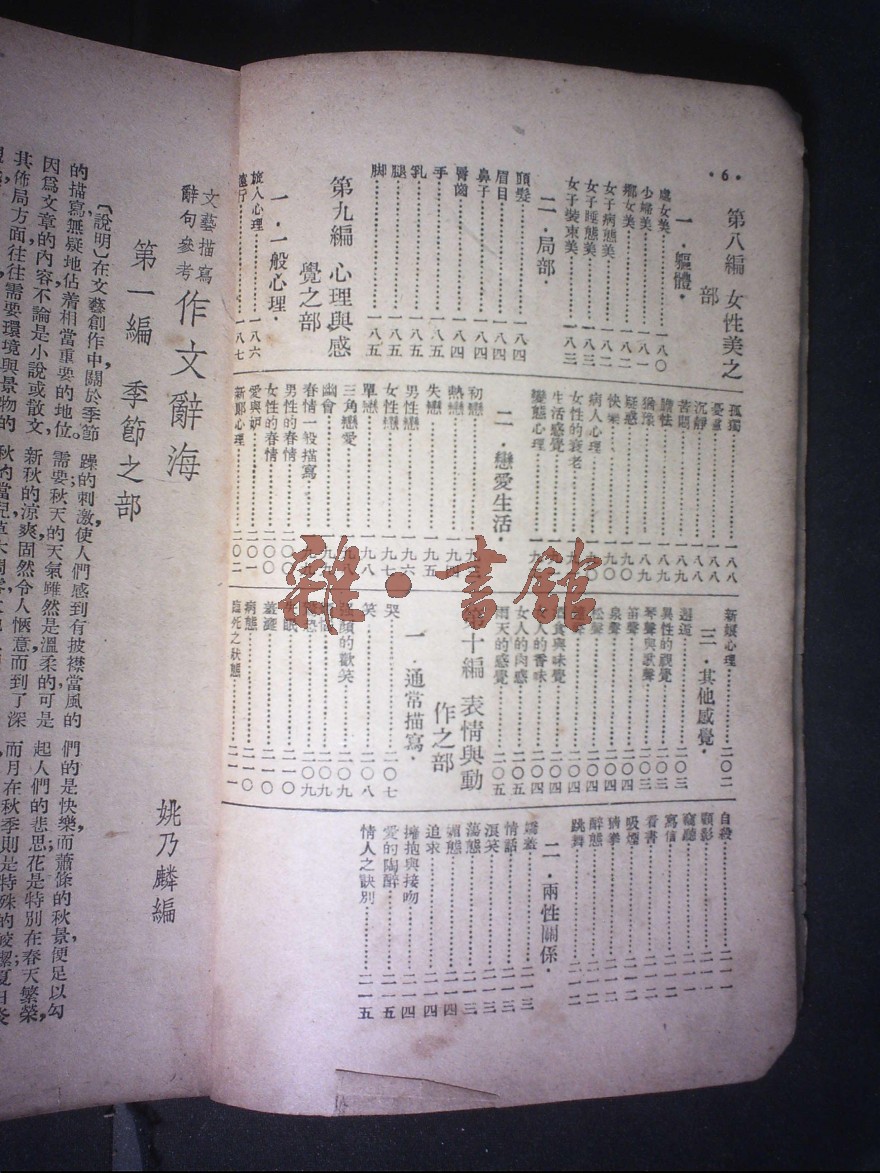 ·6·
第八編 女性美之部
一·軀體·
處女美…一八〇
少婦美…一八一
鄉女美…一八二
女子病態美…一八二
女子睡態美…一八三
女子裝束美…一八三
二·局部·
頭髮…一八四
眉目…一八四
鼻子…一八四
唇齒…一八四
手…一八五
乳…一八五
腿…一八五
脚…一八五
第九編 心理與感覺之部
一·一般心理·
旅人心理…一八六
遠行…一八七
孤獨…一八八
憂鬱…一八八
沉靜…一八八
苦悶…一八九
膽怯…一八九
猶豫…一八九
疑惑…一九〇
快樂…一九〇
病人心理…一九〇
女性的衰老
生活感覺
變態心理
二·戀愛生活·
初戀
熱戀…一九四
失戀…一九五
男性戀…一九六
女性戀…一九七
單戀…一九八
三角戀愛…一九八
幽會…一九九
春情一般描寫
男性的春情…二〇〇
女性的春情…二〇〇
愛與妒…二〇一
新郎心理…二〇二
新娘心理…二〇二
三·其他感覺·
邂逅…二〇三
異性的視覺…二〇三
琴聲與歌聲…二〇三
笛聲…二〇四
泉聲…二〇四
松聲…二〇四
食與味覺…二〇四
人的香味…二〇四
女人的肉感…二〇五
雨天的感覺…二〇五
第十編 表情與動作之部
一·通常描寫·
哭…二〇七
笑…二〇八
的歡笑…二〇九
失眠…二一〇
羞澀…二一〇
病態…二一〇
臨死之狀態…二一一
自殺…二一一
顧影…二一一
竊聽…二一一
寫信…二一二
看書…二一二
吸煙…二一二
猜拳…二一二
醉態…二一二
跳舞…二一二
二·兩性關係·
嬌羞…二一三
情話…二一三
浪笑…二一三
蕩態…二一三
媚態…二一四
追求…二一四
擁抱與接吻…二一四
愛的陶醉…二一五
情人之訣別…二一五
雜·書館
文藝描寫辭句參考 作文辭海
姚乃麟編
第一編 季節之部
〔說明〕在文藝創作中,關於季節
的描寫,無疑地佔着相當重要的地位。
因爲文章的內容,不論是小說或散文,
其佈局方面,往往需要環境與景物的
躁的刺激,使人們感到有披襟當風的
需要;秋天的天氣,雖然是溫柔的,可是
新秋的涼爽,固然令人愜意,而到了深
們的是快樂,而蕭條的秋景,便足以勾
起人們的悲思;花是特別在春天繁榮,
而月在秋季,則是特殊的皎潔;夏日炎